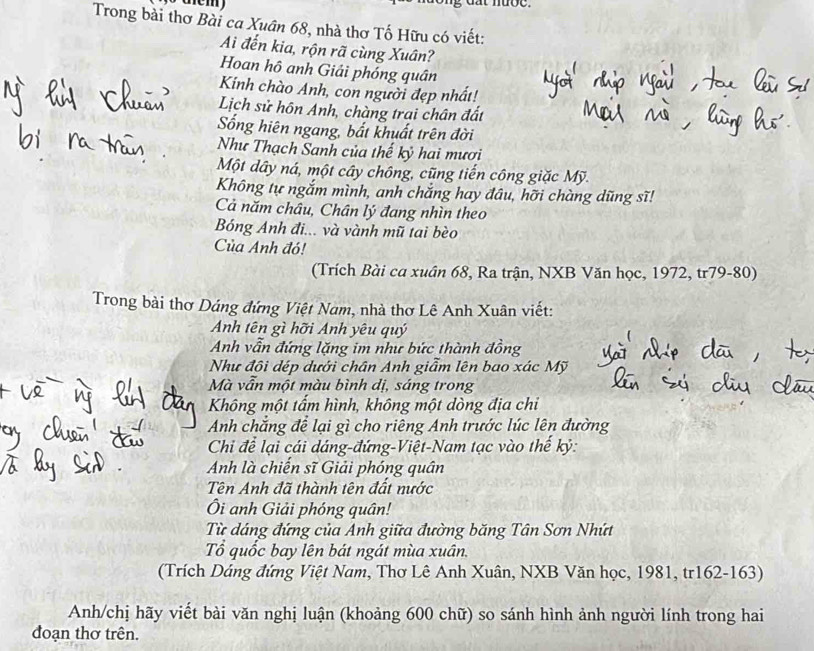 Trong bài thơ Bài ca Xuân 68, nhà thơ Tố Hữu có viết:
Ai đến kia, rộn rã cùng Xuân?
Hoan hô anh Giải phóng quân
Kính chào Anh, con người đẹp nhất!
Lịch sử hôn Anh, chàng trai chân đất
Sống hiên ngang, bất khuất trên đời
Như Thạch Sanh của thế kỷ hai mươi
Một dây ná, một cây chông, cũng tiến công giặc Mỹ.
Không tự ngắm mình, anh chẳng hay đâu, hỡi chàng dũng sĩ!
Cả năm châu, Chân lý đang nhìn theo
Bóng Anh đi... và vành mũ tai bèo
Của Anh đó!
(Trích Bài ca xuân 68, Ra trận, NXB Văn học, 1972, tr79-80)
Trong bài thơ Dáng đứng Việt Nam, nhà thơ Lê Anh Xuân viết:
Anh tên gì hỡi Anh yêu quý
Anh vẫn đứng lặng im như bức thành đồng
Như đôi dép dưới chân Anh giẫm lên bao xác Mỹ
Mà vẫn một màu bình dị, sáng trong
Không một tấm hình, không một dòng địa chỉ
Anh chẳng để lại gì cho riêng Anh trước lúc lên đường
Chỉ để lại cái dáng-đứng-Việt-Nam tạc vào thế kỷ:
Anh là chiến sĩ Giải phóng quân
Tên Anh đã thành tên đất nước
Ôi anh Giải phóng quân!
Từ dáng đứng của Anh giữa đường băng Tân Sơn Nhứt
Tổ quốc bay lên bát ngát mùa xuân.
(Trích Dáng đứng Việt Nam, Thơ Lê Anh Xuân, NXB Văn học, 1981, tr162-163)
Anh/chị hãy viết bài văn nghị luận (khoảng 600 chữ) so sánh hình ảnh người lính trong hai
đoạn thơ trên.